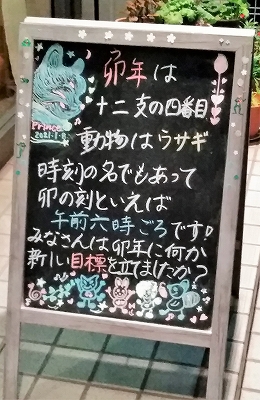 卯年は
十二支の四番目
Prince
動物はウサギ
時刻の名でもあって
卯の刻といえば
午前六時ごろです!
みなさんは卯年に何か
新しい目標を立てましたか?